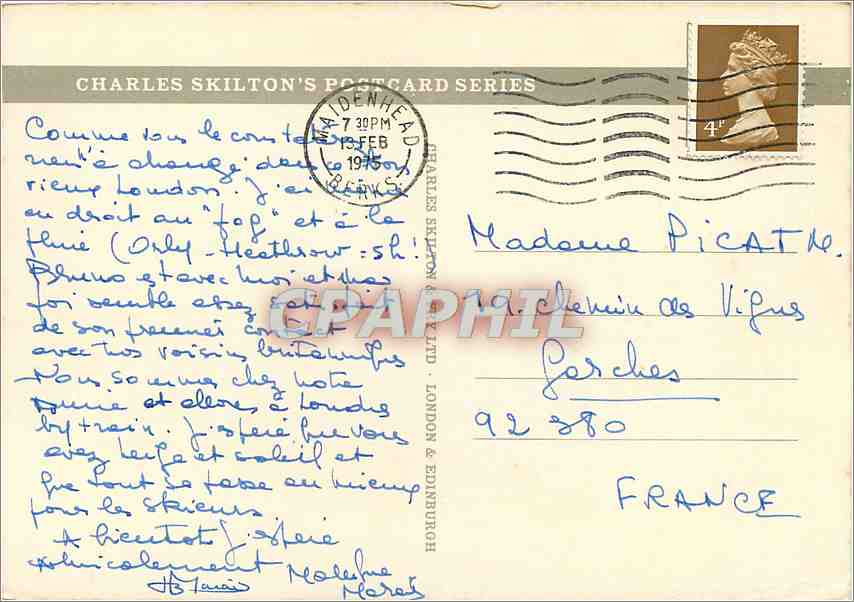 CHARLES SKILTON'S POSTCARD SERIES
MAIDENHEAD
7 30 PM
13 FEB
1975
BERKS.
4P
Comme vous le constaterez
rien à changé dans ce bon
vieux London. J'ai
eu droit au "fog" et à la
pluie (Orly - Heathrow = 5h!
Bruno est avec moi et ma
foi semble assez satisfait
de son premier contact
avec nos voisins britanniques
Nous sommes chez notre
amie et allons à Londres
by train. J'espère que vous
avez neige et soleil et
que tout se passe au mieux
pour les skieurs
A bientôt j'espère
amicalement
CHARLES SKILTON & FRY LTD · LONDON & EDINBURGH
CPAPHIL
Madame PICAT M.
19. chemin des Vignes
Garches
92 380
FRANCE